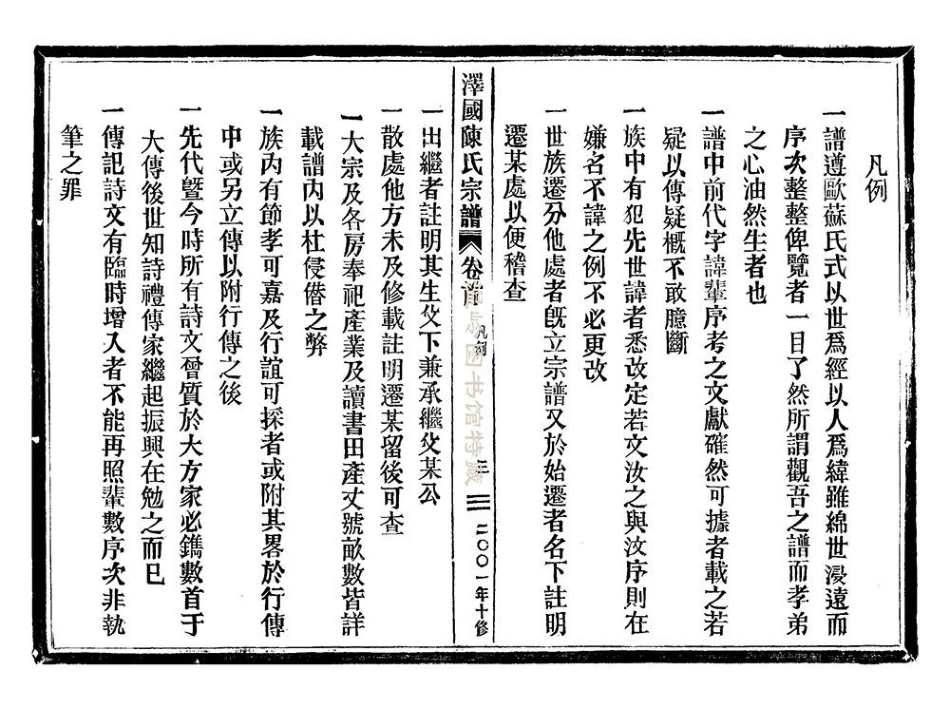 凡例
一譜遵歐蘇氏式以世爲經以人爲緯雖綿世浸遠而
序次整整俾覽者一目了然所謂觀吾之譜而孝弟
之心油然生者也
一譜中前代字諱輩序考之文獻確然可據者載之若
疑以傳疑概不敢臆斷
一族中有犯先世諱者悉改定若文汝之與汶序則在
嫌名不諱之例不必更改
一世族遷分他處者旣立宗譜又於始遷者名下註明
遷某處以便稽查
澤國陳氏宗譜 卷首 凡例 三 二〇〇一年十修
图书馆特藏
一出繼者註明其生父下兼承繼父某公
一散處他方未及修載註明遷某留後可查
一大宗及各房奉祀產業及讀書田產丈號畝數皆詳
載譜內以杜侵僭之弊
一族內有節孝可嘉及行誼可採者或附其畧於行傳
中或另立傳以附行傳之後
一先代暨今時所有詩文曾質於大方家必鐫數首于
大傳後世知詩禮傳家繼起振興在勉之而已
一傳記詩文有臨時增入者不能再照輩數序次非執
筆之罪